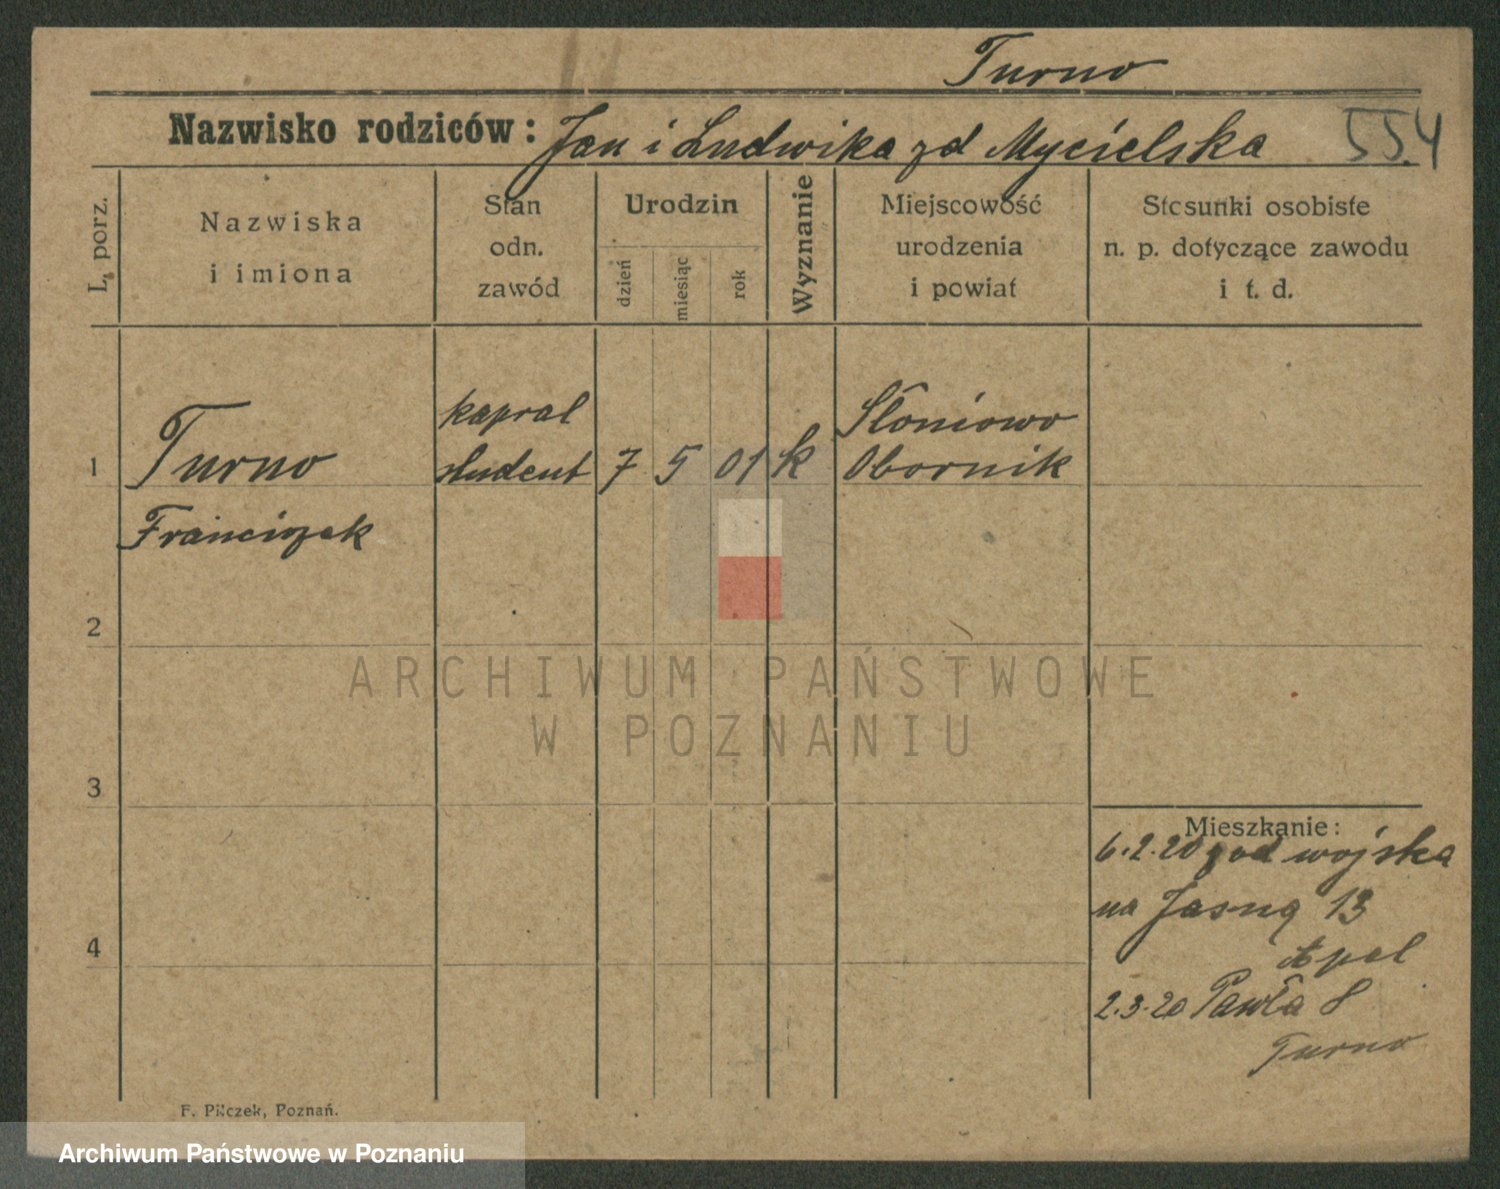 Turno
Nazwisko rodziców: Jan i Ludwika zd Mycielska 554
L. porz.
Nazwiska
i imiona
Stan
odn.
zawód
Urodzin
dzień
miesiąc
rok
Wyznanie
Miejscowość
urodzenia
i powiat
Stosunki osobiste
n. p. dotyczące zawodu
i t. d.
kapral Słoniowo
1 Turno student 7 5 01 k Obornik
Franciszek
2
ARCHIWUM PAŃSTWOWE
W POZNANIU
3
Mieszkanie:
6.2.20 od wojska
na Jasną 13
Apel
4
2.3.20 Pawła 8
Turno
F. Pilczek, Poznań.
Archiwum Państwowe w Poznaniu